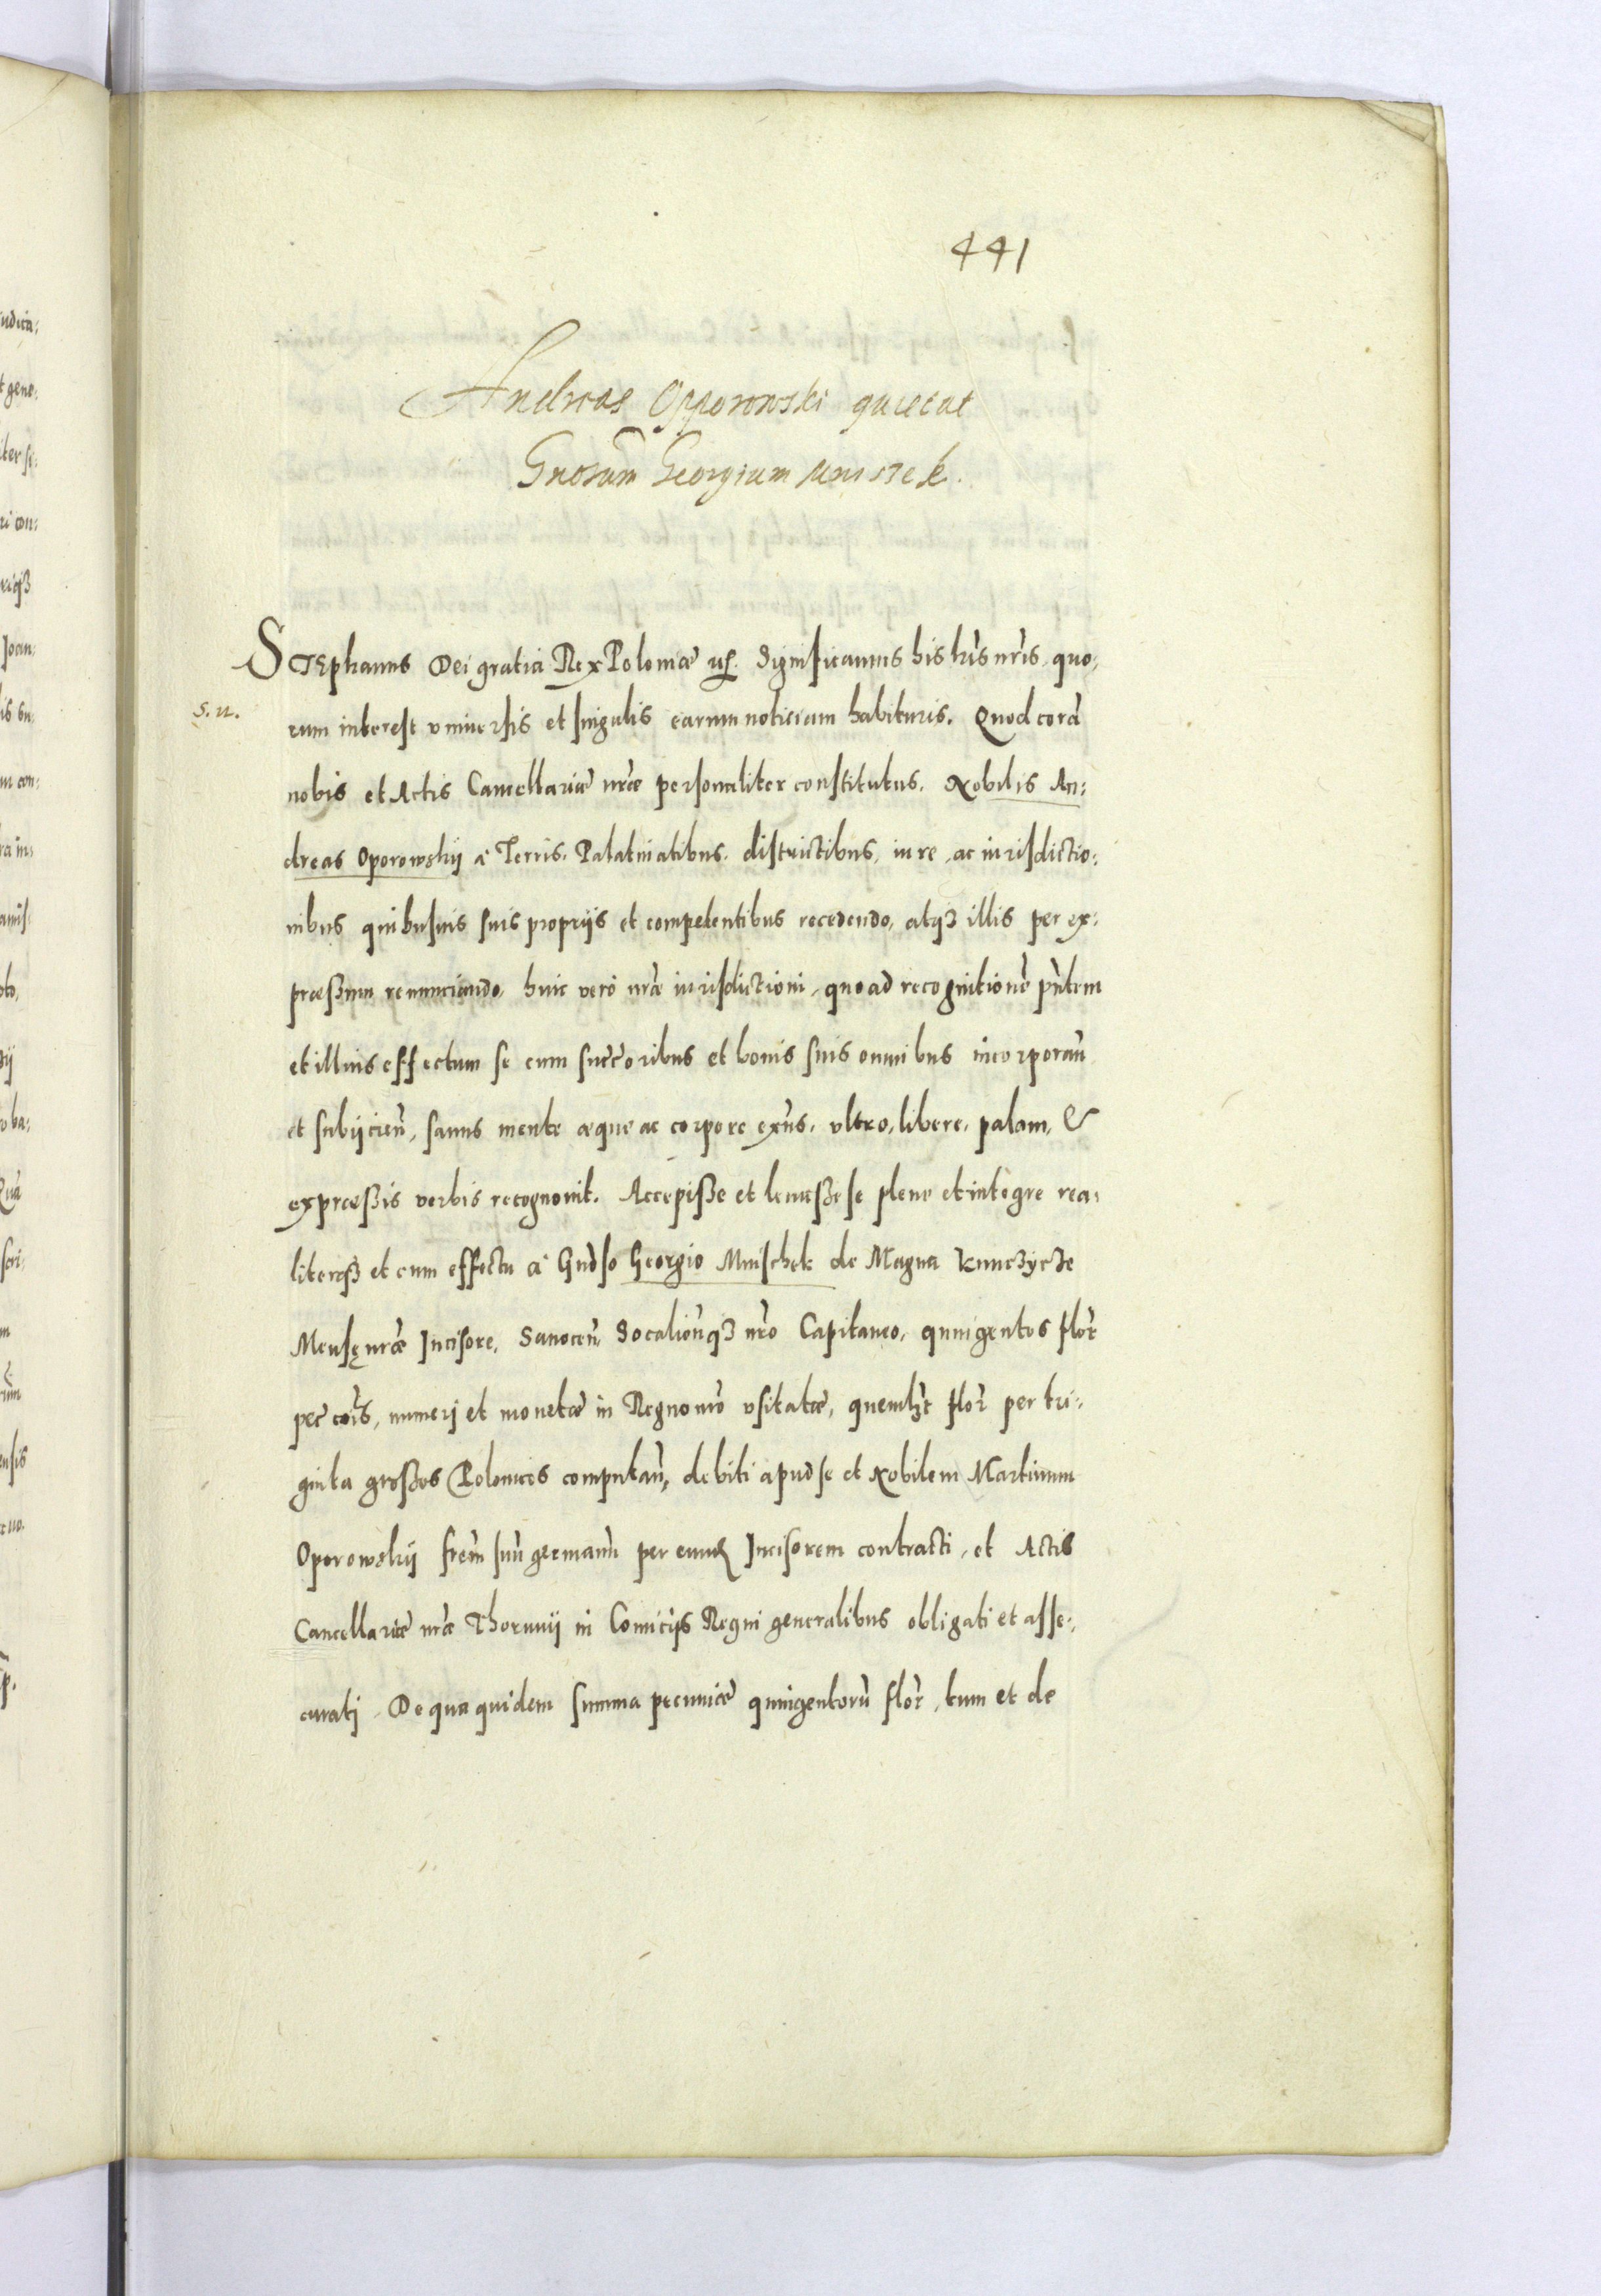 441
Andreas Opporowski quietat
Gnosum Georgium Mniszek.
Stephanus Dei gratia Rex Poloniæ etc. Significamus his lris nris, quo,
s. u.
rum interest vniuersis et singulis earum noticiam habituris. Quod corā
nobis et Actis Cancellariæ nræ personaliter constitutus. Nobilis An:
dreas Oporowskij à Terris. Palatinatibus. districtibus, iure, ac iurisdictio:
nibus quibusuis suis proprijs et competentibus recedendo, atqʒ illis per ex:
præssum renunciando, huic vero nræ iurisdictioni, quoad recognitionē pntem
et illius effectum se cum succoribus et bonis suis omnibus incorporan̄
et subijcien̄, sanus mente æque ac corpore exns. vltro, libere, palam, &
expræssis verbis recognouit. Accepisse et leuasse se plene et integre rea,
literqʒ et cum effectu à Gndso Georgio Mnischek de Magna Kunczycze
Mensę nræ Incisore, Sanocen̄ Socalien̄qʒ nro Capitaneo, quingentos flor
pec cois, numeri et monetæ in Regno nro vsitatæ, quemlʒt flor per tri:
ginta grossos Polonicos computan̄, debiti apud se et Nobilem Martinum
Oporowskij frem suū germanū per eund Incisorem contracti, et Actis
Cancellariæ nræ Thorunij in Comitijs Regni generalibus obligati et asse,
curati. De qua quidem summa pecuniæ quingentorū flor, tum et de